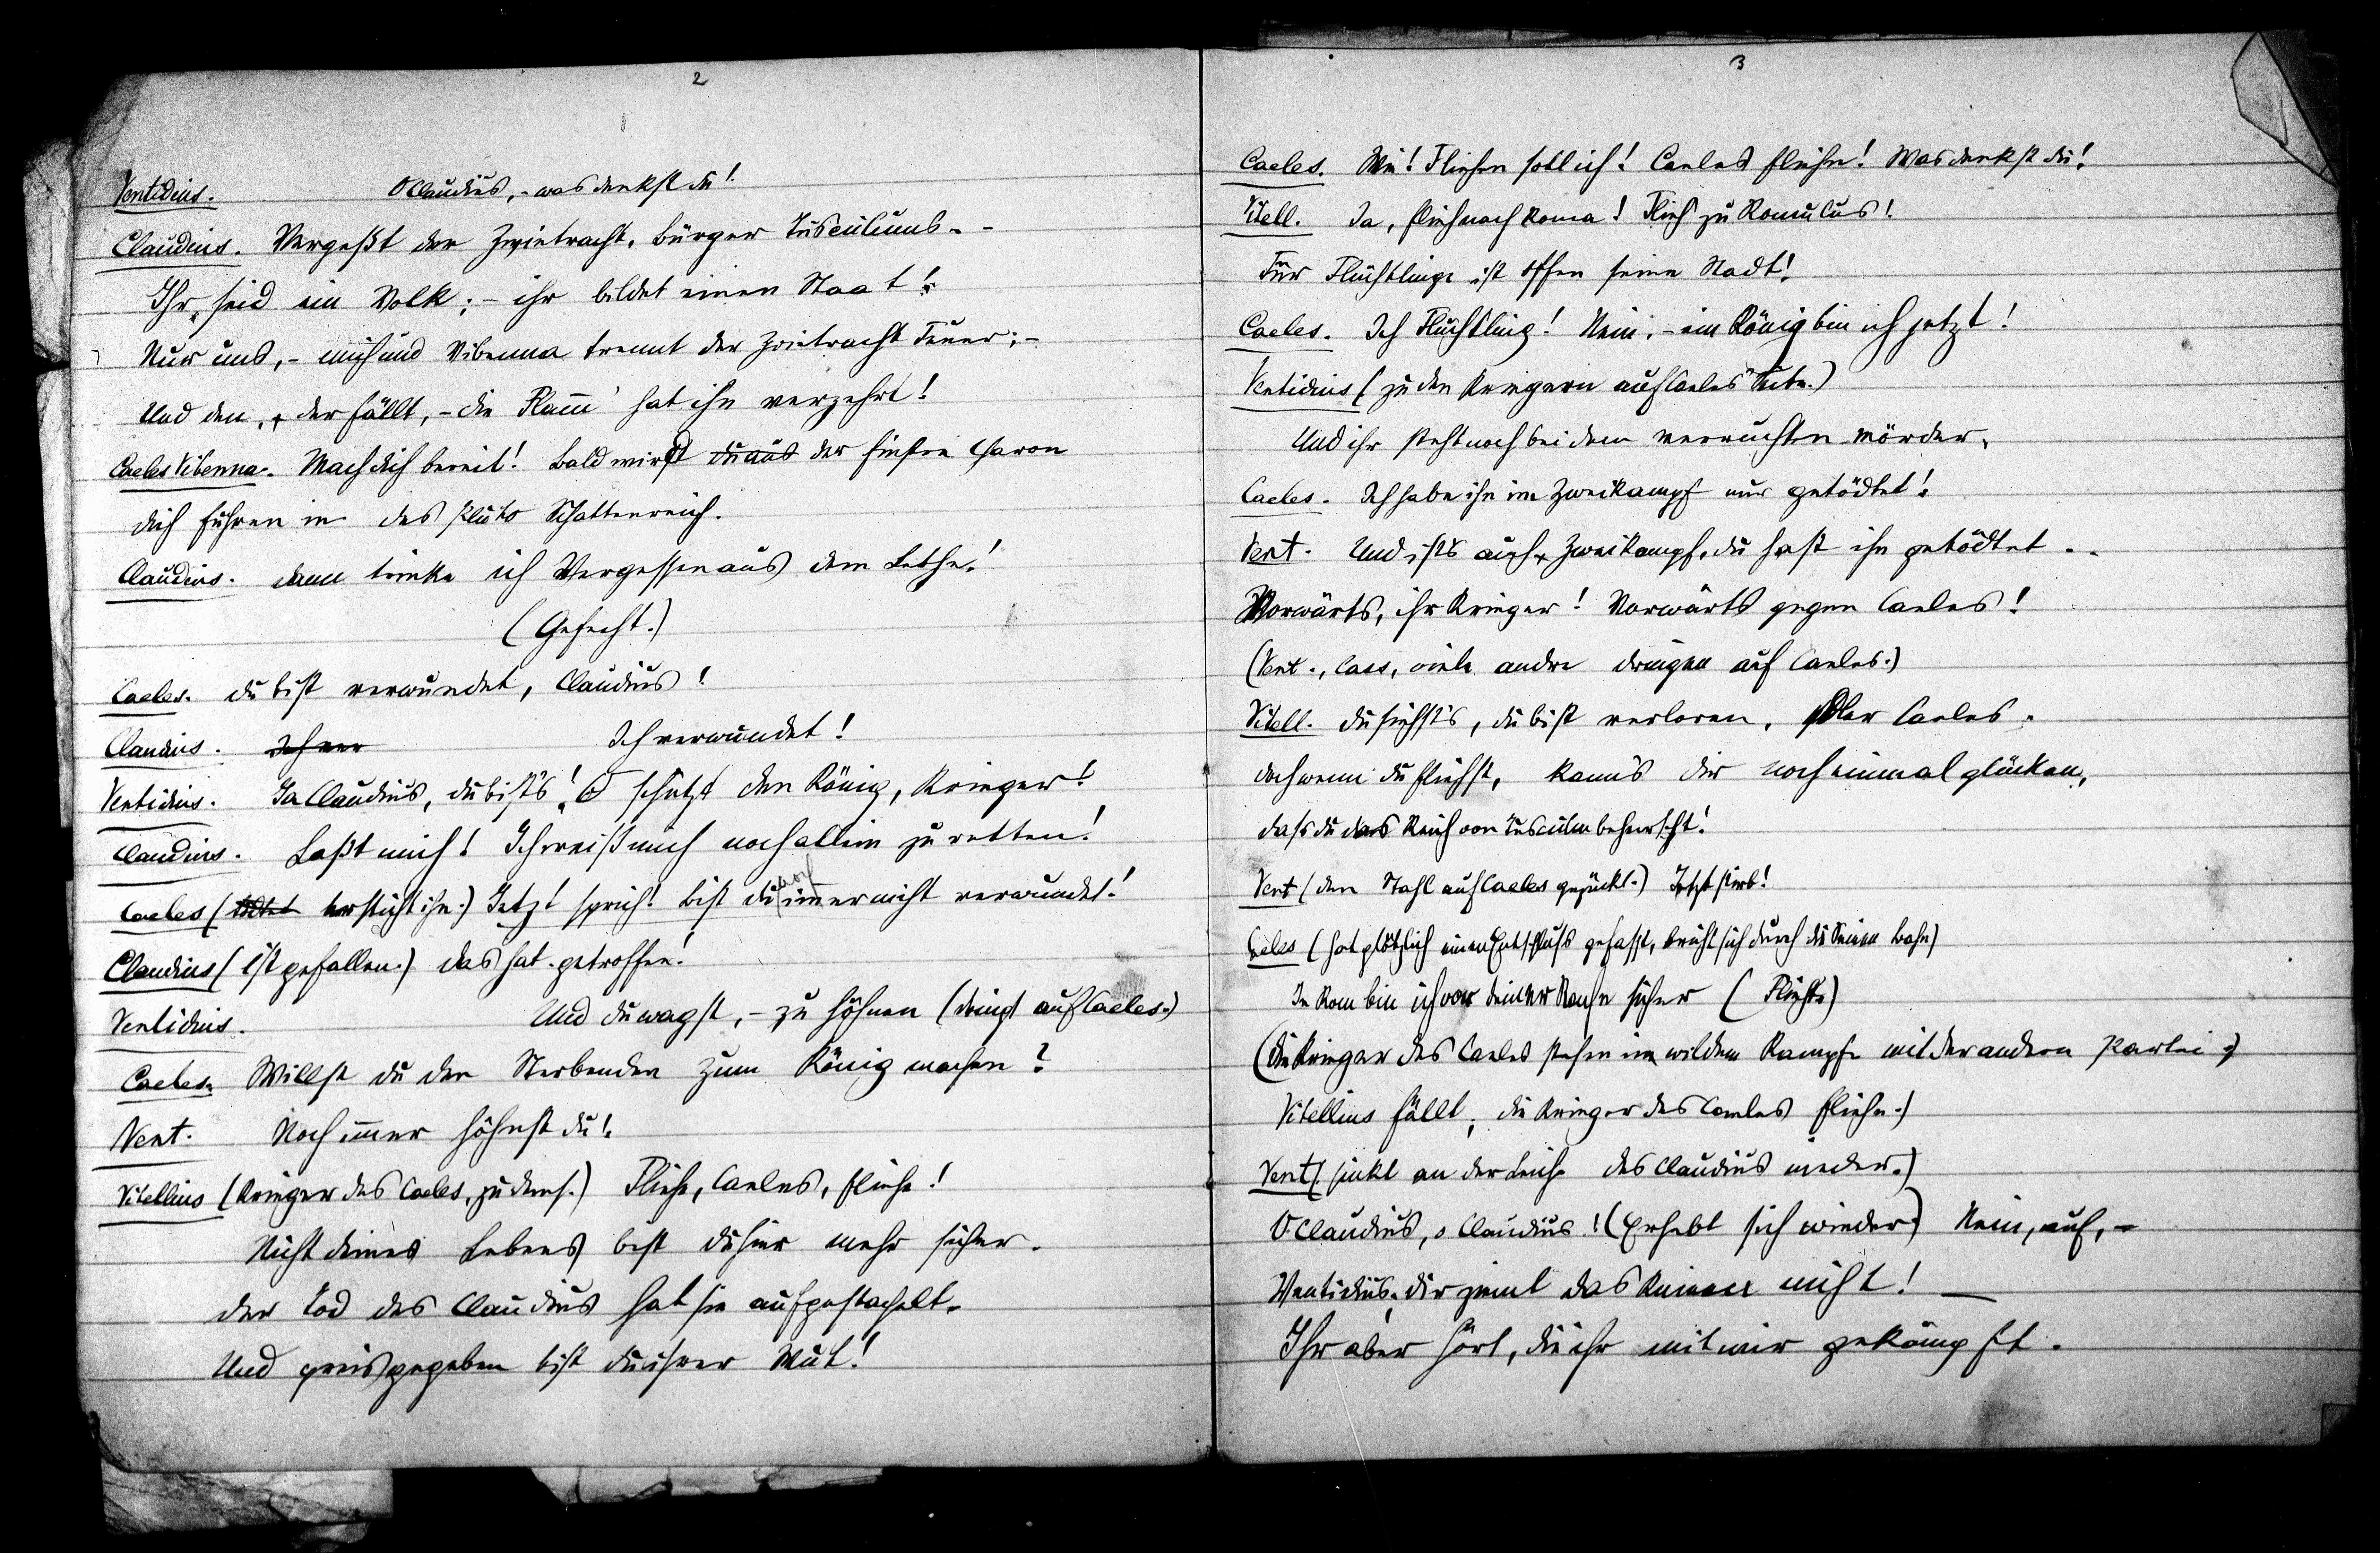 2
Ventidius. O Claudius, - was denkst du!
Claudius. Vergeßt der Zwietracht, Bürger Tusculums. -
Ihr seid ein Volk; - ihr bildet einen Staat!
Nur uns, - mich und Vibenna trennt der Zwietracht Feuer; -
Und den, der fällt, - die Flamm' hat ihn verzehrt!
Caeles Vibenna. Mach dich bereit! Bald wird du aus der finstre Charon
dich führen in des Pluto Schattenreich.
Claudius. dann trinke ich Vergessen aus dem Lethe!
(Gefecht.)
Caeles. du bist verwundet, Claudius!
Claudius. Ich ver Ich verwundet!
Ventidius. Ja Claudius, du bist's! O schützt den König, Krieger!
Claudius. Laßt mich! Ich weiß mich noch allein zu retten!
Caeles (tödtet ersticht ihn.) Jetzt sprich! bist du noch immer nicht verwundet!
Claudius (ist gefallen.) das hat getroffen!
Ventidius. Und du wagst, - zu höhnen (dringt auf Caeles.)
Caeles. Willst du den Sterbenden zum König machen?
Vent. Noch immer höhnst du!
Vitellius (Krieger des Caeles, zu dems.) Fliehe, Caeles, fliehe!
Nicht deines Lebens bist du hier mehr sicher.
der Tod des Claudius hat sie aufgestachelt.
Und preisgegeben bist du ihrer Wut!
3
Caeles. Wie! Fliehen soll ich! Caeles fliehn! Was denkst du!
Vitell. Ja, flieh nach Roma! Flieh zu Romulus!
Für Flüchtlinge ist offen seine Stadt!
Caeles. Ich Flüchtling! Nein, - ein König bin ich jetzt!
Ventidius (zu den Kriegern auf Caeles' Seite.)
Und ihr steht noch bei dem verruchten Mörder,
Caeles. Ich habe ihn im Zweikampf nur getödtet!
Vent. Und ist's auch Zweikampf, du hast ihn getödtet..
Vorwärts, ihr Krieger! Vorwärts gegen Caeles!
(Vent., Caes, viele andre dringen auf Caeles.)
Vitell. du siehst's, du bist verloren, edler Caeles.
doch wenn du fliehst, kann's dir noch einmal glücken,
dass du das Reich von Tusculum beherrscht!
Vent (den Stahl auf Caeles gezückt.) Jetzt stirb!
Caeles (hat plötzlich einen Entschluss gefasst, bricht sich durch die Seinen Bahn)
In Rom bin ich vor deiner Rache sicher (Flieht)
(die Krieger des Caeles stehen im wilden Kampfe mit der andern Partei;
Vitellius fällt; die Krieger des Caeles fliehn.)
Vent (sinkt an der Leiche des Claudius nieder.)
O Claudius, o Claudius! (Erhebt sich wieder) Nein, auf, -
Ventidius, dir ziemt das nicht! —
Ihr aber hört, die ihr mit mir gekämpft.